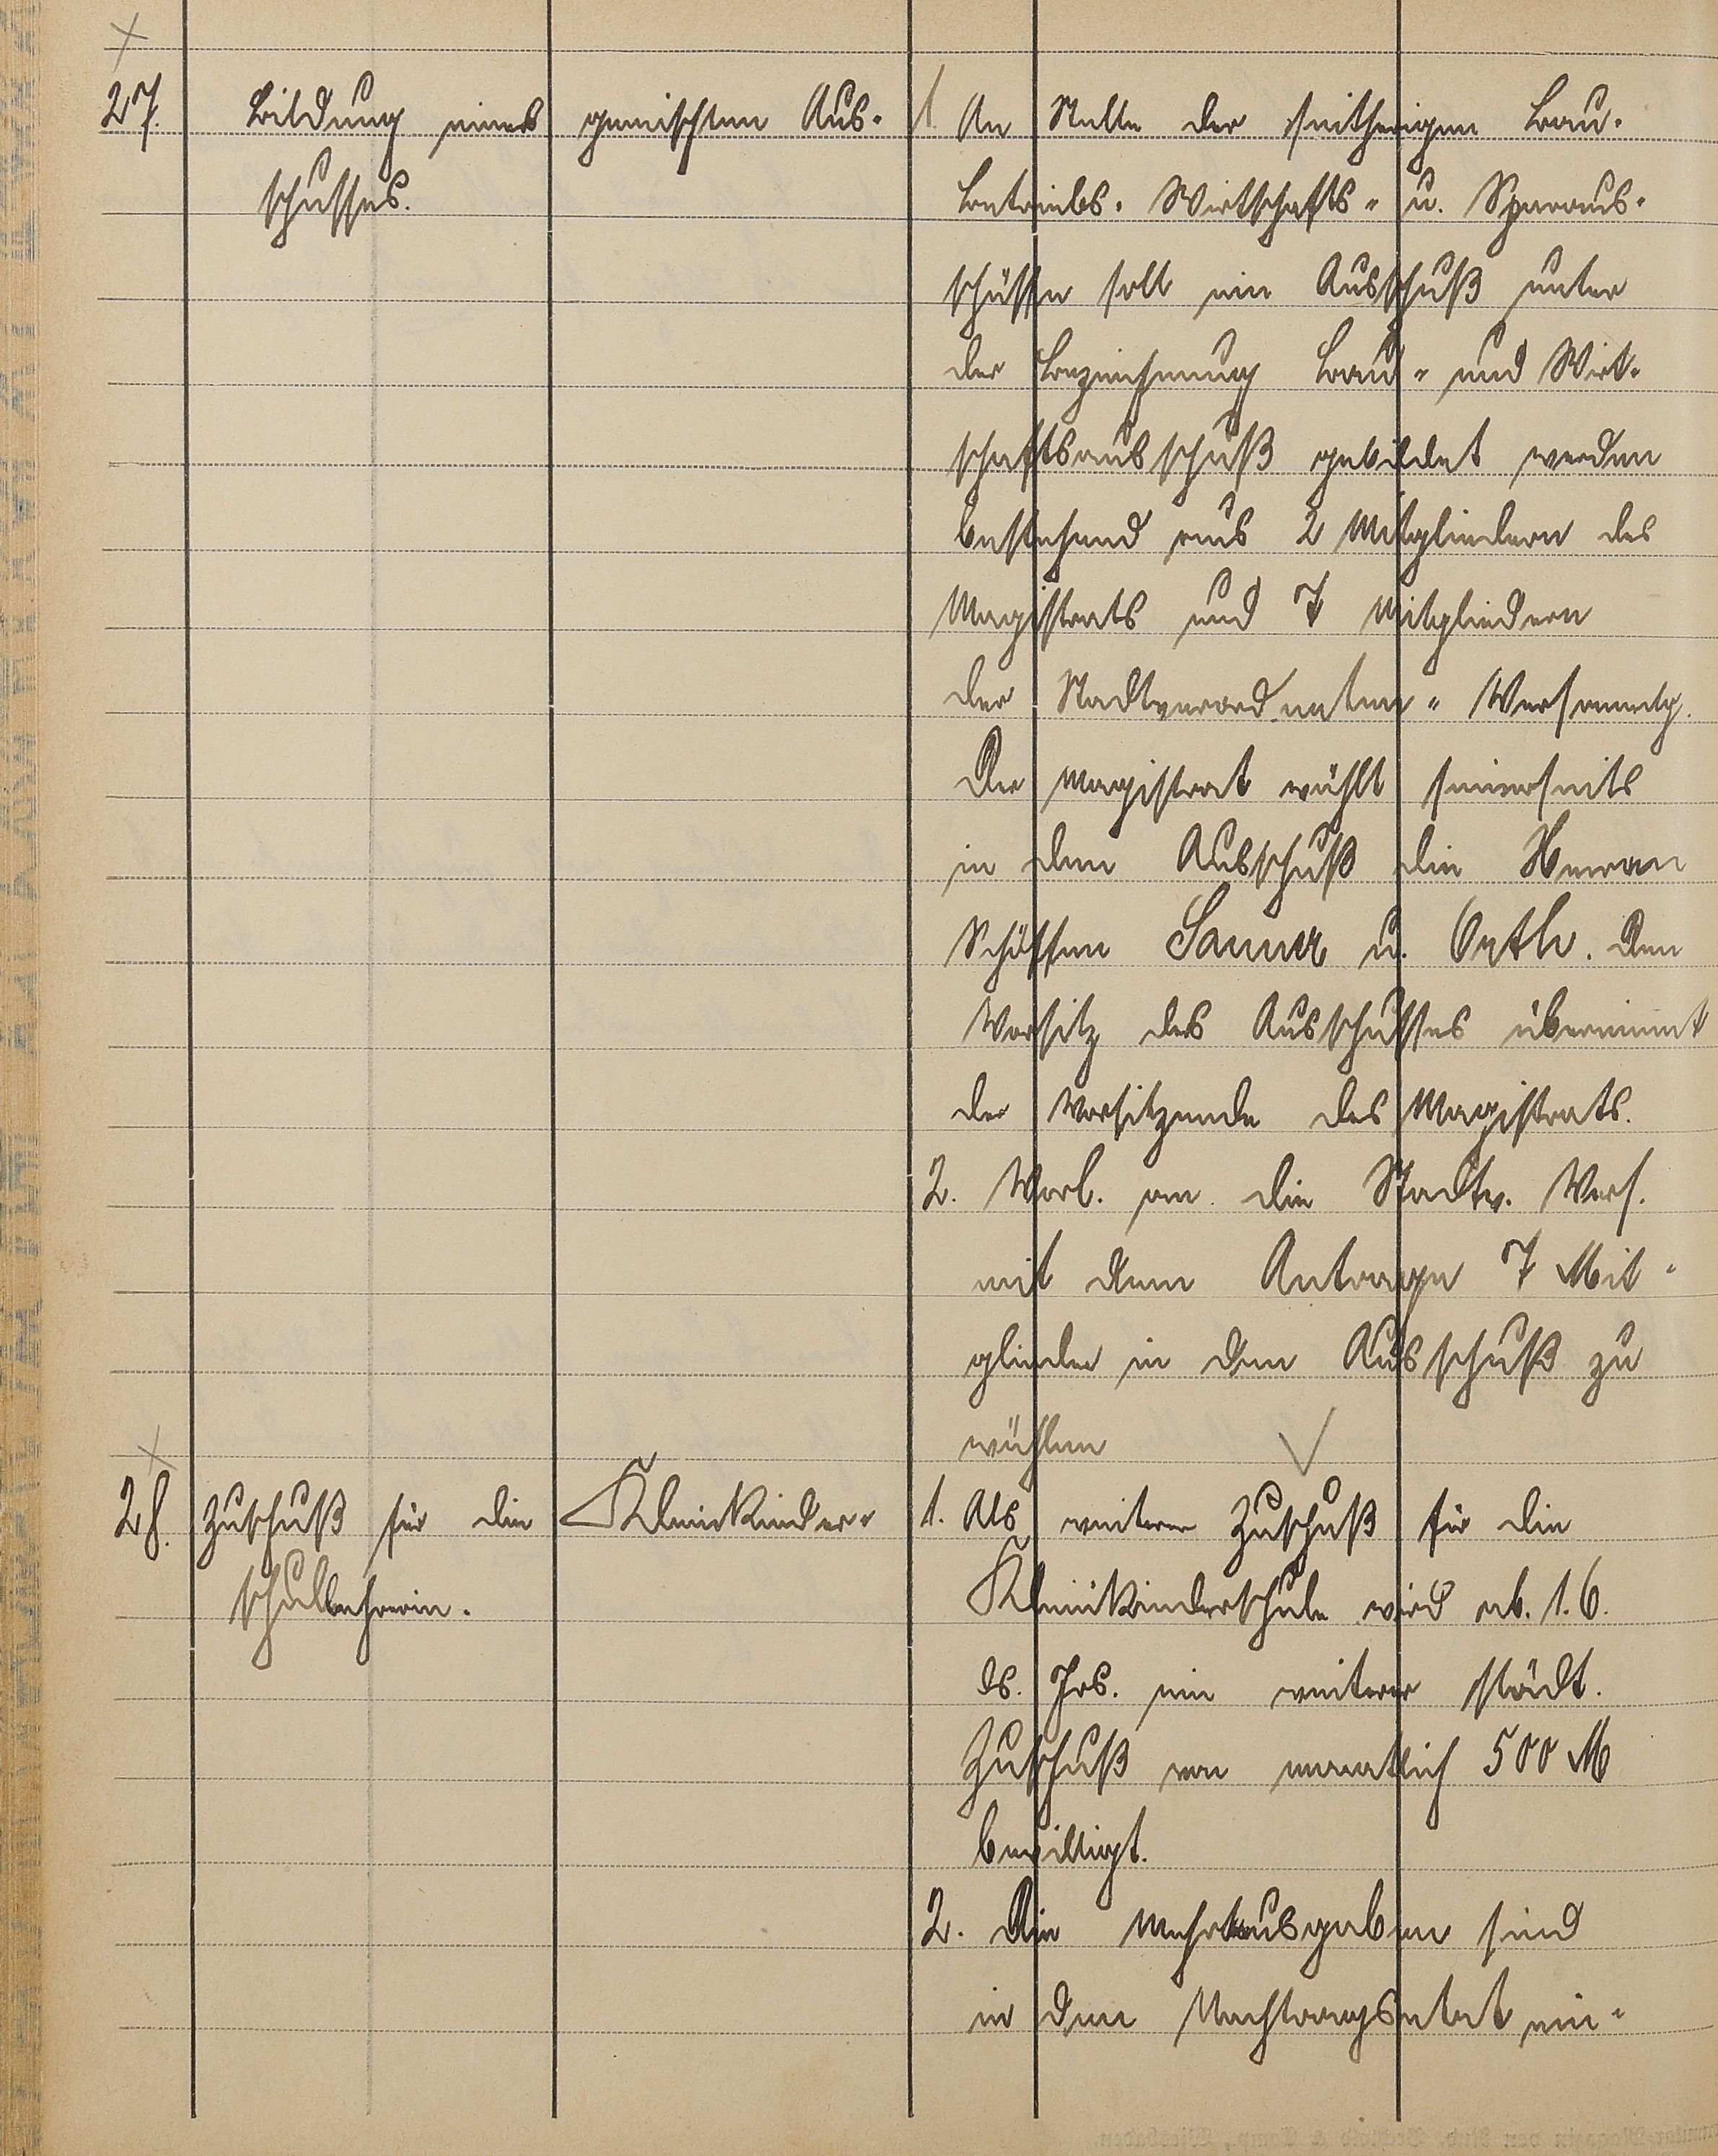 27. Bildung eines gemischten Aus-
schusses.
1. An Stelle der seitherigen Bau-
Betriebs- Wirtschafts- u. Sparaus-
schüsse soll ein Ausschuß unter
der Bezeichnung Bau- und Wirt-
schaftsausschuß gebildet werden
bestehend aus 2 Mitgliedern des
Magistrats und 7 Mitgliedern
der Stadtverordneten- Versammlg.
Der Magistrat wählt seinerseits
in den Ausschuß die Herren
Schöffen Sauer u. Orth. Den
Vorsitz des Ausschusses übernimmt
der Vorsitzende des Magistrats.
2. Vorl. an die Stadtv. Vers.
mit dem Antrage 7 Mit-
glieder in den Ausschuß zu
wählen
28. Zuschuß für die Kleinkinder-
schullehrerin.
1. Als weiterer Zuschuß für die
Kleinkinderschule wird ab. 1.6.
ds. Jrs. ein weiterer städt.
Zuschuß von monatlich 500 M
bewilligt.
2. Die Mehrausgaben sind
in den Nachtragsetat ein-